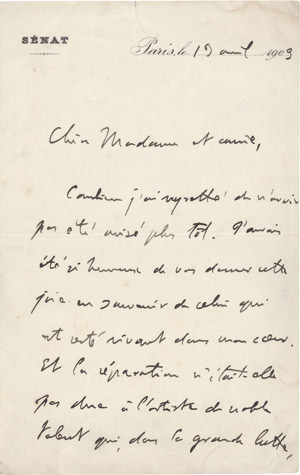 SÉNAT
Paris, le 13 avril 1903
Chère Madame et amie,
Combien j'ai regretté de n'avoir
pas été avisé plus tôt. J'aurais
été si heureux de vous donner cette
joie en souvenir de celui qui
est resté vivant dans mon cœur.
Et la réparation n'était-elle
pas due à l'artiste de noble
talent qui, dans la grande lutte,